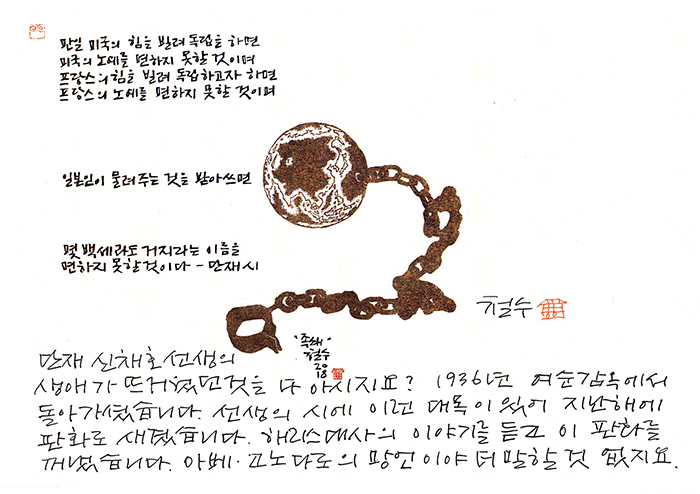 만일 미국의 힘을 빌려 독립을 하면
미국의 노예를 면하지 못할 것이며
프랑스의 힘을 빌려 독립하고자 하면
프랑스의 노예를 면하지 못할 것이며
일본인이 물려주는 것을 받아쓰면
몇 백세라도 거지라는 이름을
면하지 못할 것이다 - 단재 시
"족쇄"
철수
2018
철수
단재 신채호선생의
생애가 뜨거웠던것을 다 아시지요? 1936년 여순감옥에서
돌아가셨습니다. 선생의 시에 이런 대목이 있어 지난해에
판화로 새겼습니다. 해리스대사의 이야기를 듣고 이 판화를
꺼냈습니다. 아베·고노다로의 망언이야 더 말할 것 없지요.